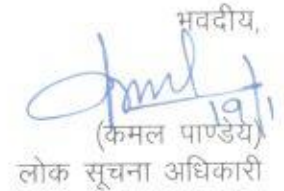 भवदीय,
19/1
(कमल पाण्डेय)
लोक सूचना अधिकारी